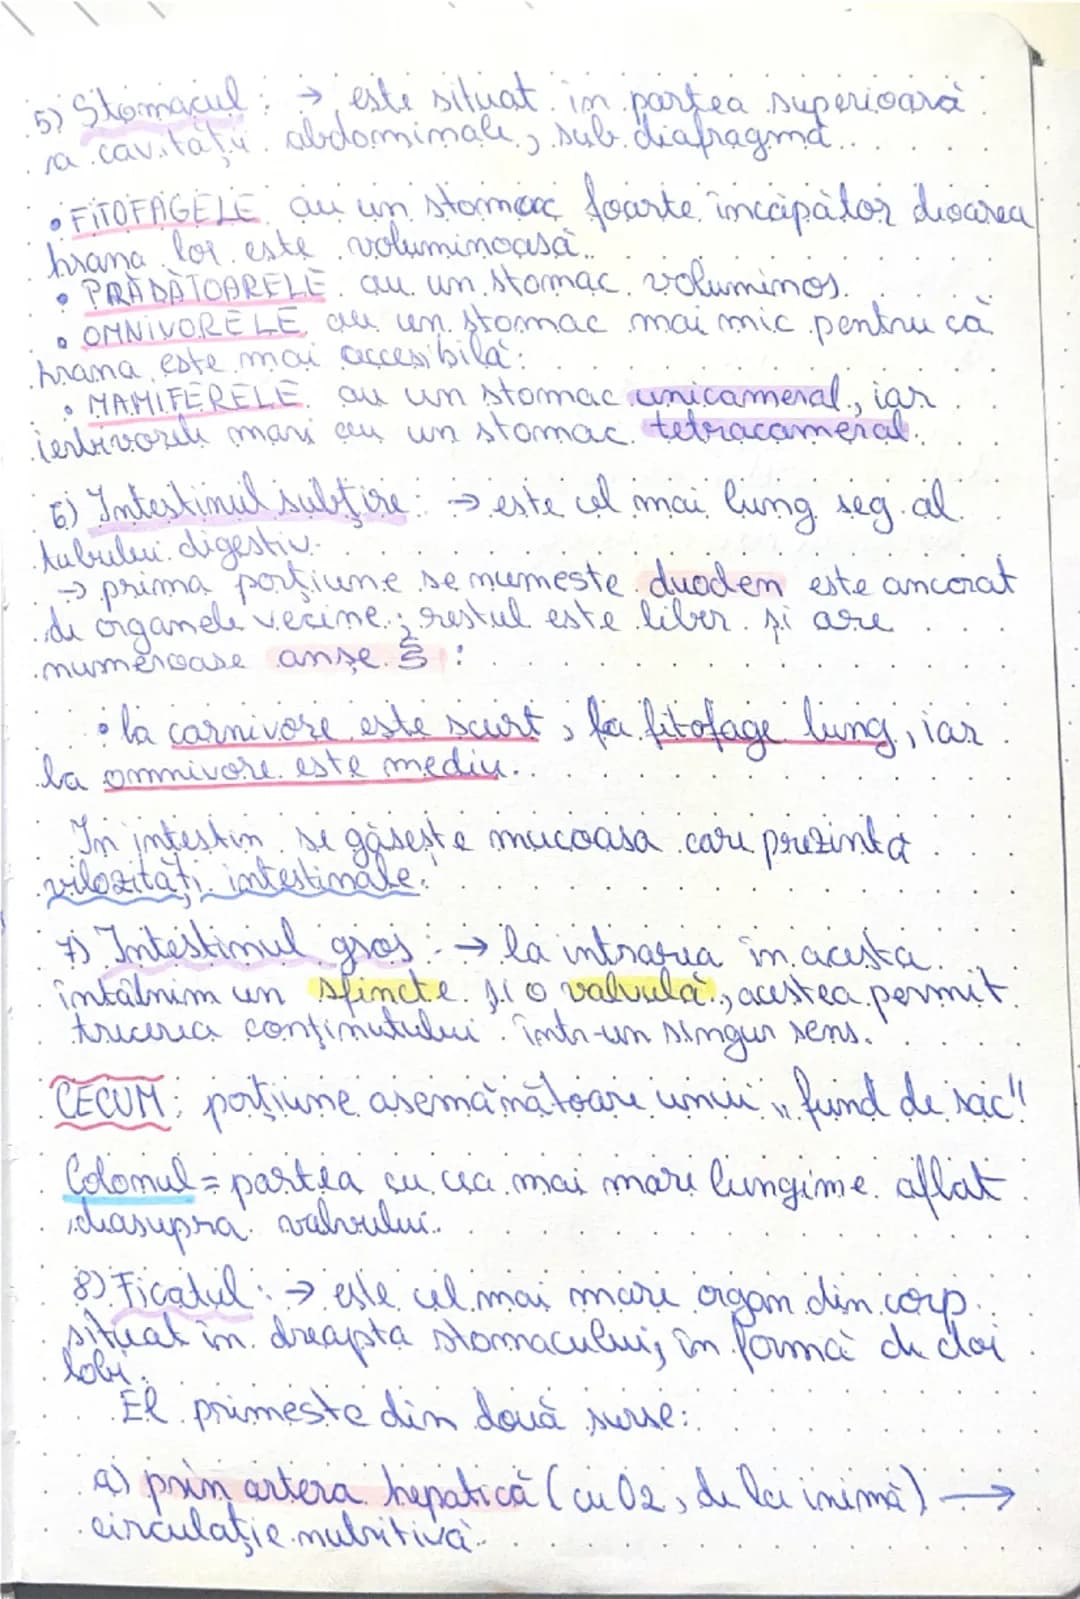 5) Stomacul: → este situat în partea superioară
a cavității abdominale, sub diafragmă.
• FITOFAGELE au un stomac foarte încăpător dioarea
hrana lor este voluminoasă.
• PRĂDĂTOARELE au un stomac voluminos.
• OMNIVORELE au un stomac mai mic pentru că
hrana este mai accesibilă.
• MAMIFERELE au un stomac unicameral, iar
ierbivorele mari au un stomac tetracameral.
6) Intestinul subțire: → este cel mai lung seg. al
tubului digestiv.
→ prima porțiune se numeste duoden este ancorat
de organele vecine; restul este liber și are
numeroase anse :
• la carnivore este scurt; la fitofage lung, iar
la omnivore este mediu.
In intestin se găsește mucoasa care prezintă
vilozități intestinale.
7) Intestinul gros: → la intrarea în acesta
întâlnim un sfincte și o valvulă, acestea permit
trecerea conținutului într-un singur sens.
CECUM: porțiune asemănătoare unui „fund de sac"!
Colonul = partea cu cea mai mare lungime aflat
deasupra valvului.
8) Ficatul: → este cel mai mare organ din corp
situat în dreapta stomacului; în formă de doi
lobi.
El primeste din două surse:
a) prin artera hepatică (cu O2, de la inimă) →
circulație nutritivă.